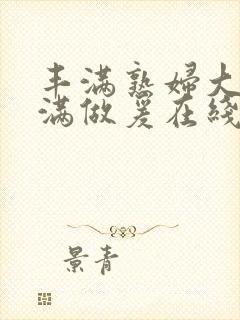 丰满熟妇大
满做爰在线
景青